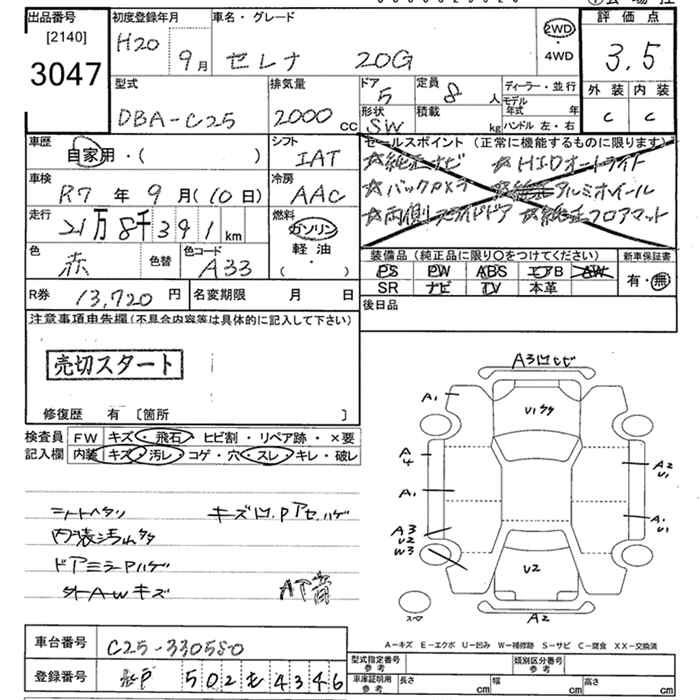 出品番号
[2140]
3047
初度登録年月
H20
9月
車名・グレード
セレナ 20G
2WD
4WD
評価点
3.5
外装 内装
C C
型式
DBA-C25
排気量
2000 CC
ドア
5
形状
SW
定員
8人
積載
kg
ディーラー・並行
モデル年式 年
ハンドル 左・右
車歴
自家用・( )
シフト
IAT
車検
R7年9月(10日)
冷房
AAC
走行
21万8千391km
燃料
ガソリン
軽油
( )
色
赤
色替
色コード
A33
R券
13,720円
名変期限 月 日
セールスポイント(正常に機能するものに限ります)
☆純正ナビ ☆HIDオートライト
☆バックカメラ ☆純正アルミホイール
☆両側スライドドア ☆純正フロアマット
装備品(純正品に限り○をつけてください)
PS PW ABS エアB AW
SR ナビ TV 本革
新車保証書
有・無
後日品
注意事項申告欄(不具合内容等は具体的に記入して下さい)
売切スタート
修復歴 有 〔箇所 〕
検査員記入欄
FW キズ・飛石・ヒビ割・リペア跡・×要
内装 キズ・汚レ・コゲ・穴・スレ・キレ・破レ
シートヘタリ キズ凹.Pアセ.ハゲ
内装汚レ
ドアミラーPハゲ
外AWキズ
A3凹ヒビ
A1
U1
A4
A1
A3
U2
W3
A2
U1
A1
U1
U2
A2
スペア
A-キズ E-エクボ U-凹み W-補修跡 S-サビ C-腐食 XX-交換済
車台番号
C25-330550
登録番号
502 も 4346
型式指定番号
参考
類別区分番号
参考
車庫証明用
参考
長さ cm
幅 cm
高さ cm